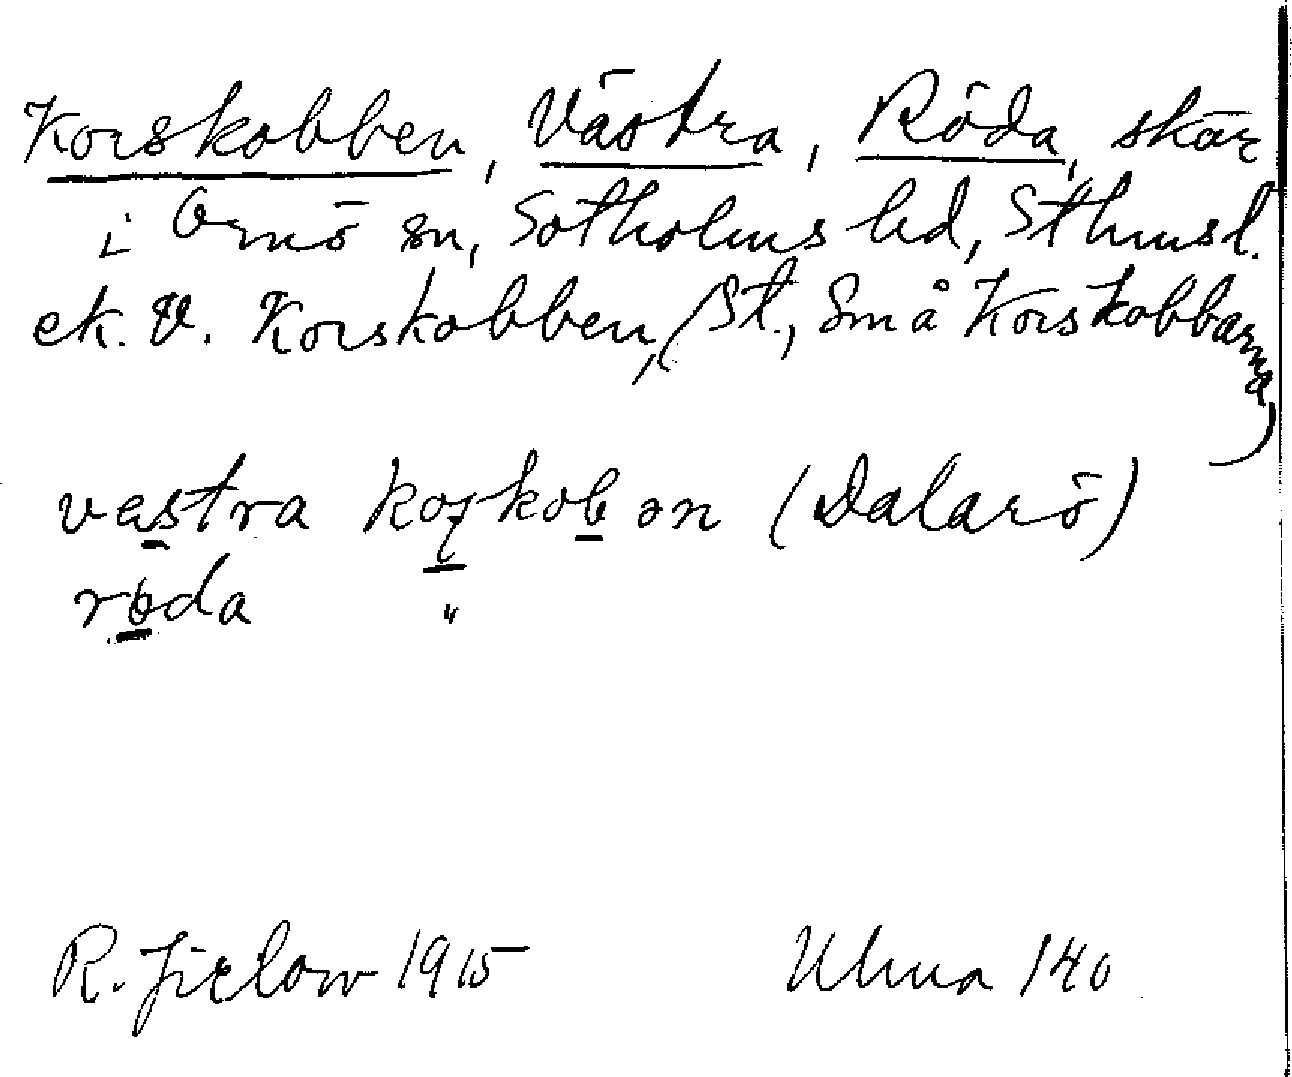 Korskobben, Västra, Röda, skär
i Ornö sn, Sotholms hd, Sthmsl.
ek. V. Korskobben, (St., Små Korskobbarna)
vastra koskobon (Dalarö)
röda "
R. Jirlow 1915 Ulma 140